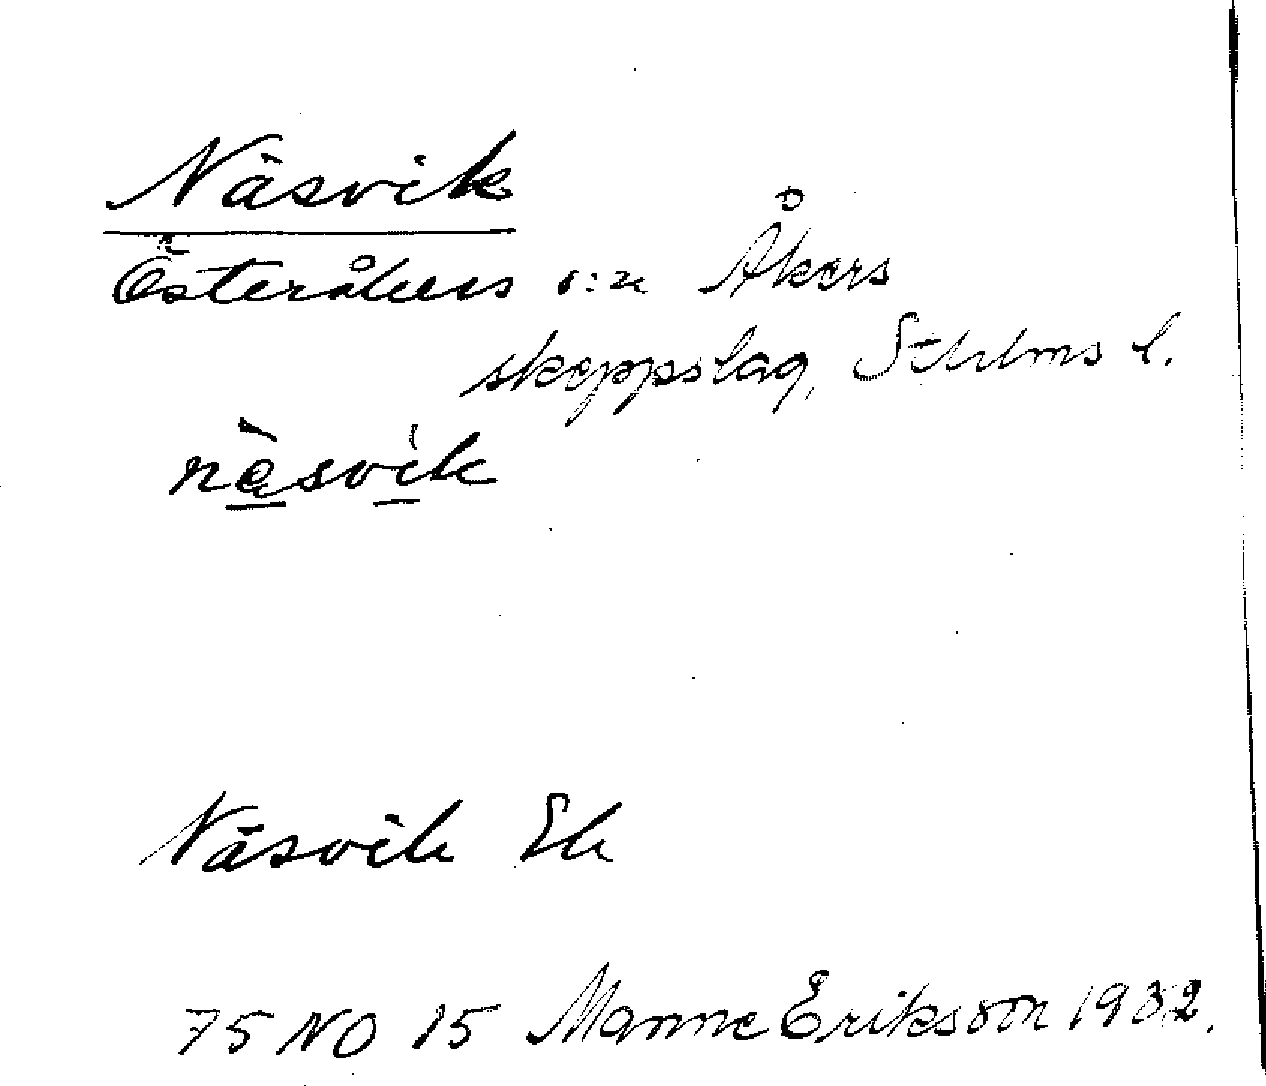 Näsvik
Österåkers s:n Åkers
skeppslag, Sthlms l.
nä̀svík
Näsvik Ek
75 NO 15 Manne Eriksson 1932.